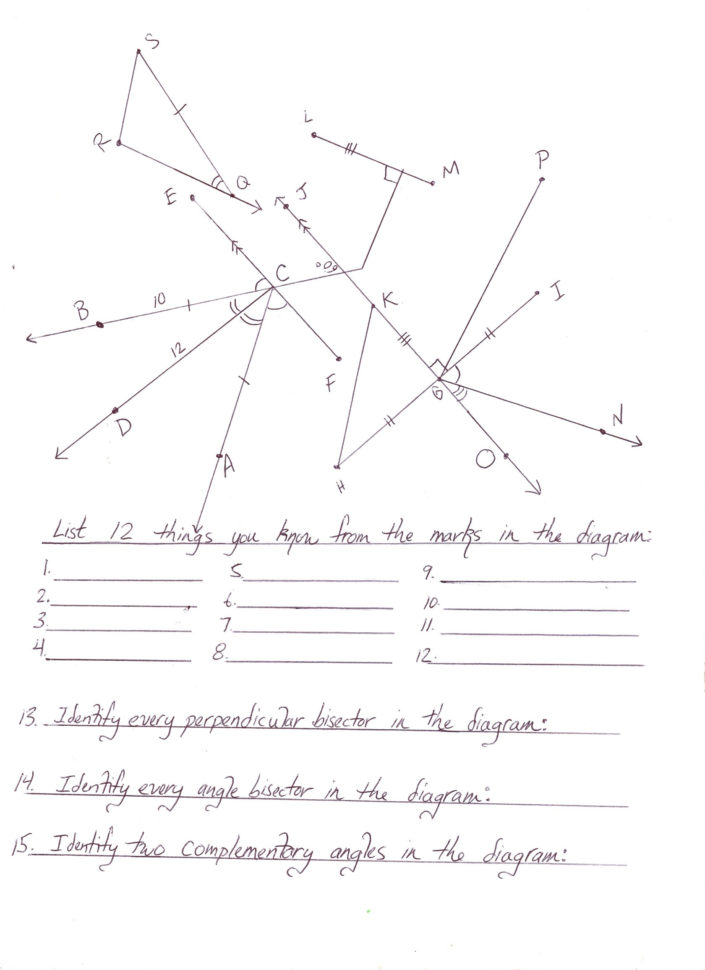 S
L
R
P
Q
M
E
J
C
°09
I
K
B
10
12
F
G
N
D
O
A
H
List 12 things you know from the marks in the diagram:
1. 5. 9.
2. 6. 10.
3. 7. 11.
4. 8. 12.
13. Identify every perpendicular bisector in the diagram:
14. Identify every angle bisector in the diagram:
15. Identify two complementary angles in the diagram: